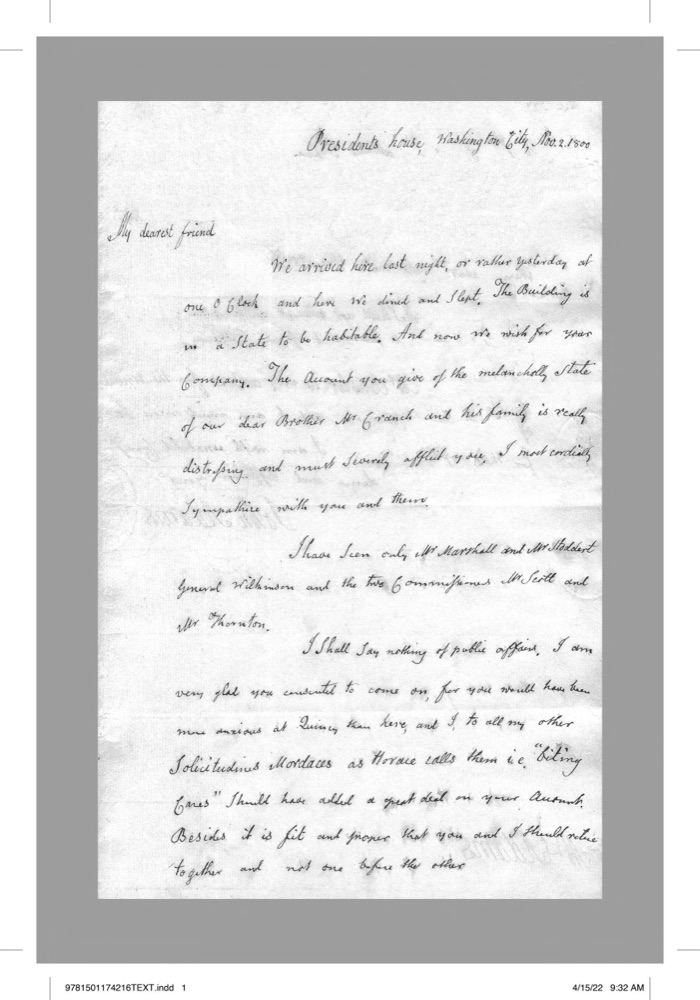 Presidents house, Washington City, Nov. 2. 1800
My dearest friend
We arrived here last night, or rather yesterday at
one O Clock and here we dined and Slept. The Building is
in a State to be habitable. And now we wish for your
Company. The Account you give of the melancholly State
of our dear Brother Mr Cranch and his family is really
distressing and must Severely afflict you. I most cordially
Sympathize with you and them.
I have Seen only Mr Marshall and Mr Stoddert
General Wilkinson and the two Commissioners Mr Scott and
Mr Thornton.
I Shall Say nothing of public affairs. I am
very glad you consented to come on, for you would have been
more anxious at Quincy than here, and I, to all my other
Solicitudines Mordaces as Horace calls them i.e. "biting
Cares" Should have added a great deal on your Account.
Besides it is fit and proper that you and I Should retire
together and not one before the other
9781501174216TEXT.indd 1
4/15/22 9:32 AM